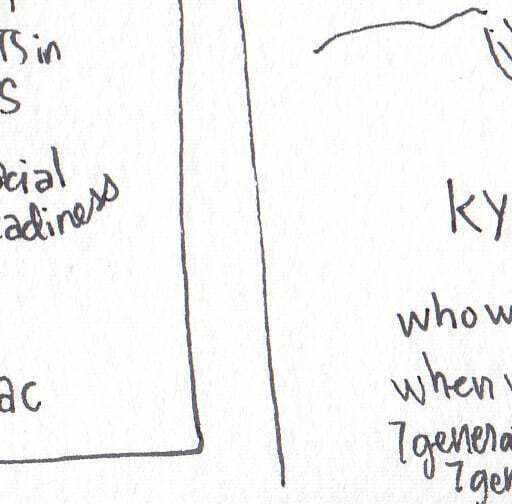 TS in
S
ocial
eadiness
ac
ky
who w
when
7 genera
7 gen